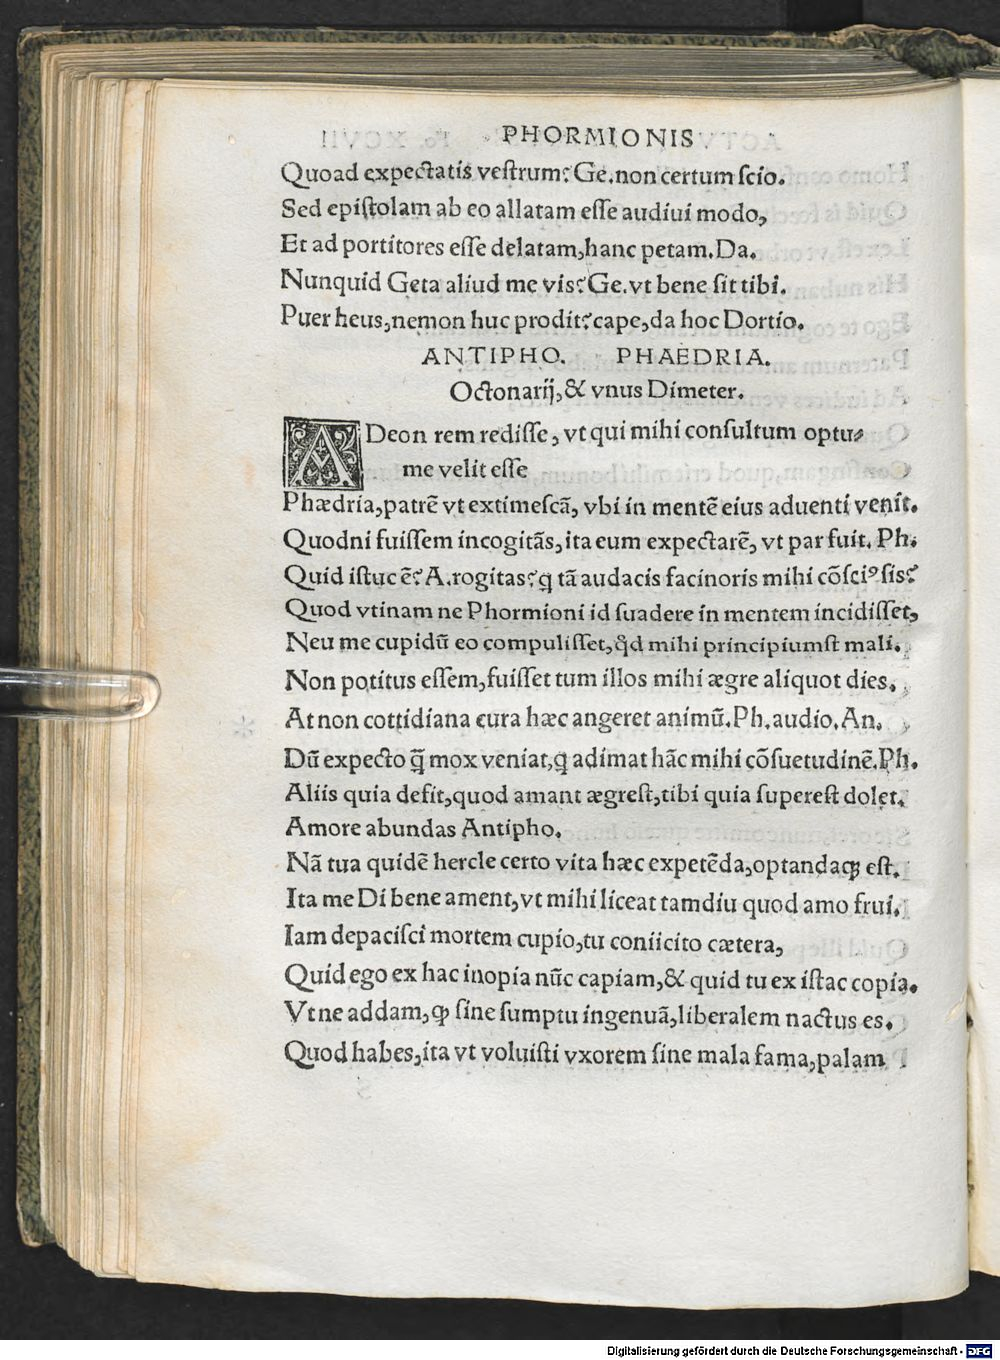 PHORMIONIS
Quoad expectatis veſtrum? Ge. non certum ſcio.
Sed epiſtolam ab eo allatam eſſe audiui modo,
Et ad portitores eſſe delatam, hanc petam. Da.
Nunquid Geta aliud me vis? Ge. vt bene ſit tibi.
Puer heus, nemon huc prodit? cape, da hoc Dortio.
ANTIPHO. PHAEDRIA.
Octonarij, & vnus Dimeter.
ADeon rem rediſſe, vt qui mihi conſultum optu-
me velit eſſe
Phædria, patrē vt extimeſcā, vbi in mentē eius aduenti venit.
Quodni fuiſſem incogitās, ita eum expectarē, vt par fuit. Ph.
Quid iſtuc ē? A. rogitas? q̄ tā audacis facinoris mihi cōſciꝰ ſis?
Quod vtinam ne Phormioni id ſuadere in mentem incidiſſet,
Neu me cupidū eo compuliſſet, qđ mihi principiumſt mali.
Non potitus eſſem, fuiſſet tum illos mihi ægre aliquot dies.
At non cottidiana cura hæc angeret animū. Ph. audio. An.
Dū expecto q̄ mox veniat, q adimat hāc mihi cōſuetudinē. Ph.
Aliis quia defit, quod amant ægreſt, tibi quia ſupereſt dolet.
Amore abundas Antipho.
Nā tua quidē hercle certo vita hæc expetēda, optandaq; eſt.
Ita me Di bene ament, vt mihi liceat tamdiu quod amo frui.
Iam depaciſci mortem cupio, tu coniicito cætera,
Quid ego ex hac inopia nūc capiam, & quid tu ex iſtac copia.
Vt ne addam, ꝙ ſine ſumptu ingenuā, liberalem nactus es.
Quod habes, ita vt voluiſti vxorem ſine mala fama, palam
Digitalisierung gefördert durch die Deutsche Forschungsgemeinschaft - DFG